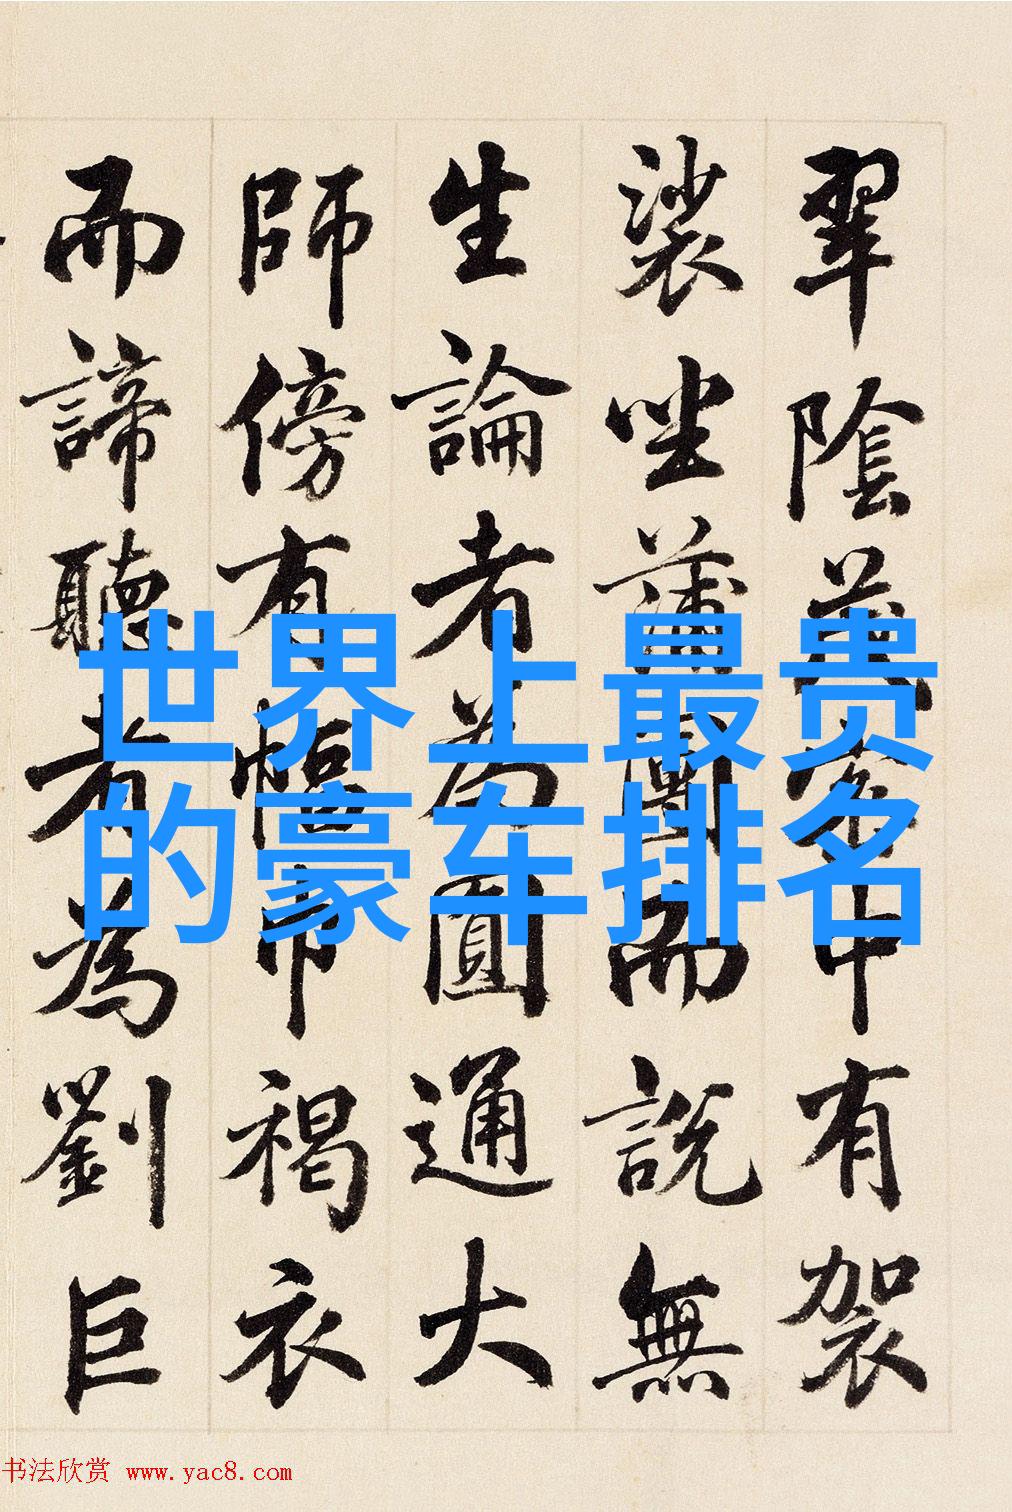 翠陰茂密中有袈
裟坐蒲團而說無
生論者為圓通大
師傍有幅巾褐衣
而諦聽者為劉巨
世界上最贵
的豪车排名
书法欣赏 www.yac8.com